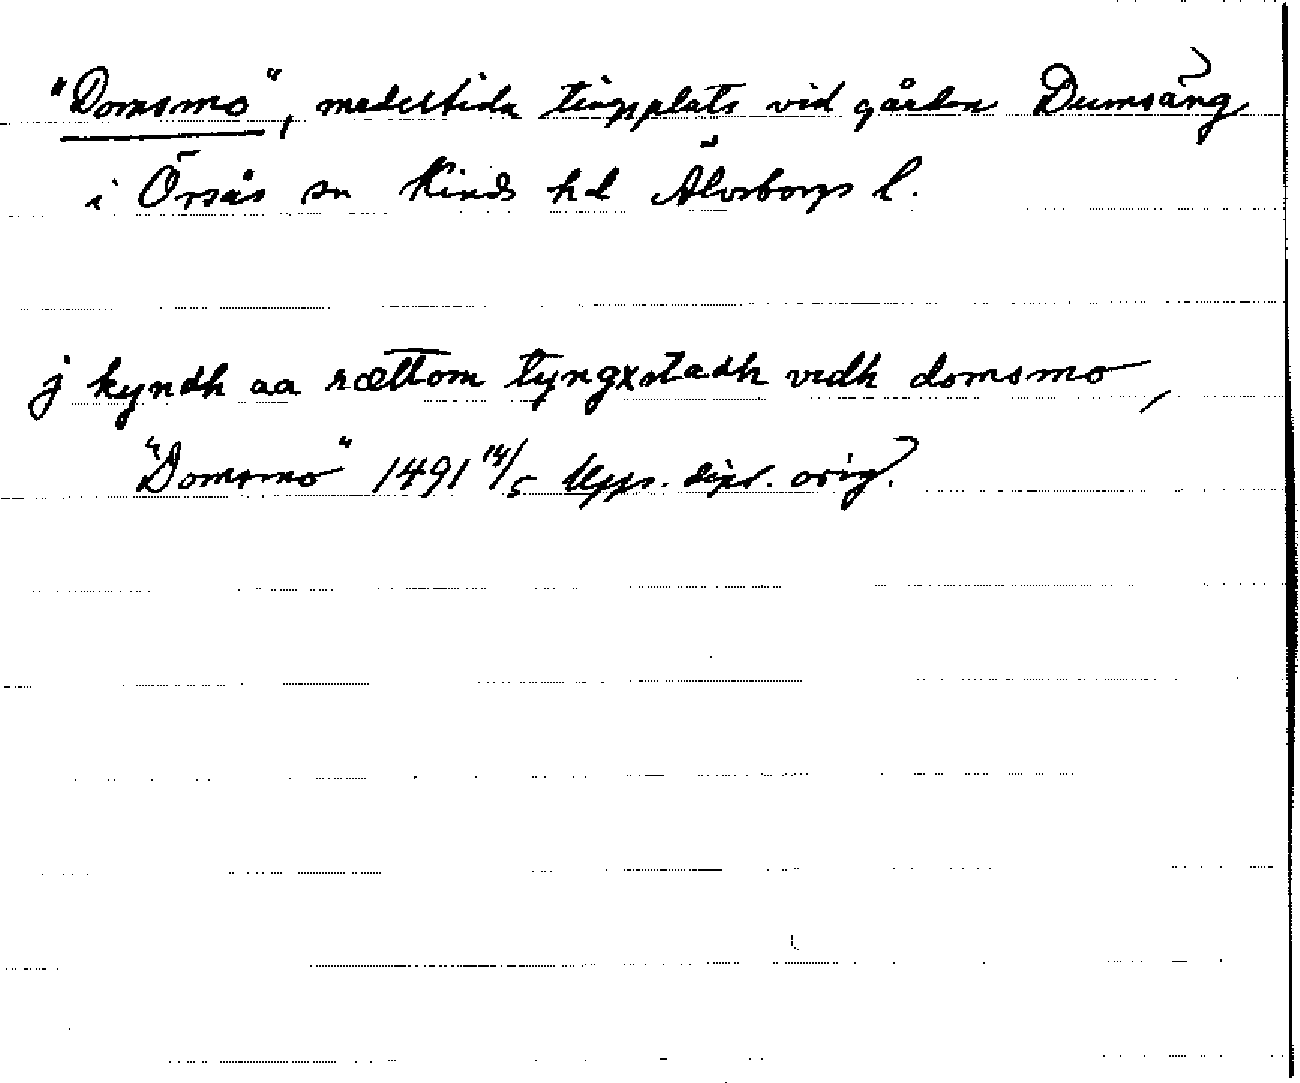 "Domsmo", medeltida tingplats vid gården Dumsäng
i Örsås sn Kinds hd Älvsborgs l.
j kyndh aa rættom tyngxstadh vidh domsmo,
"Domsmo" 1491 14/5 Upps. dipl. orig.